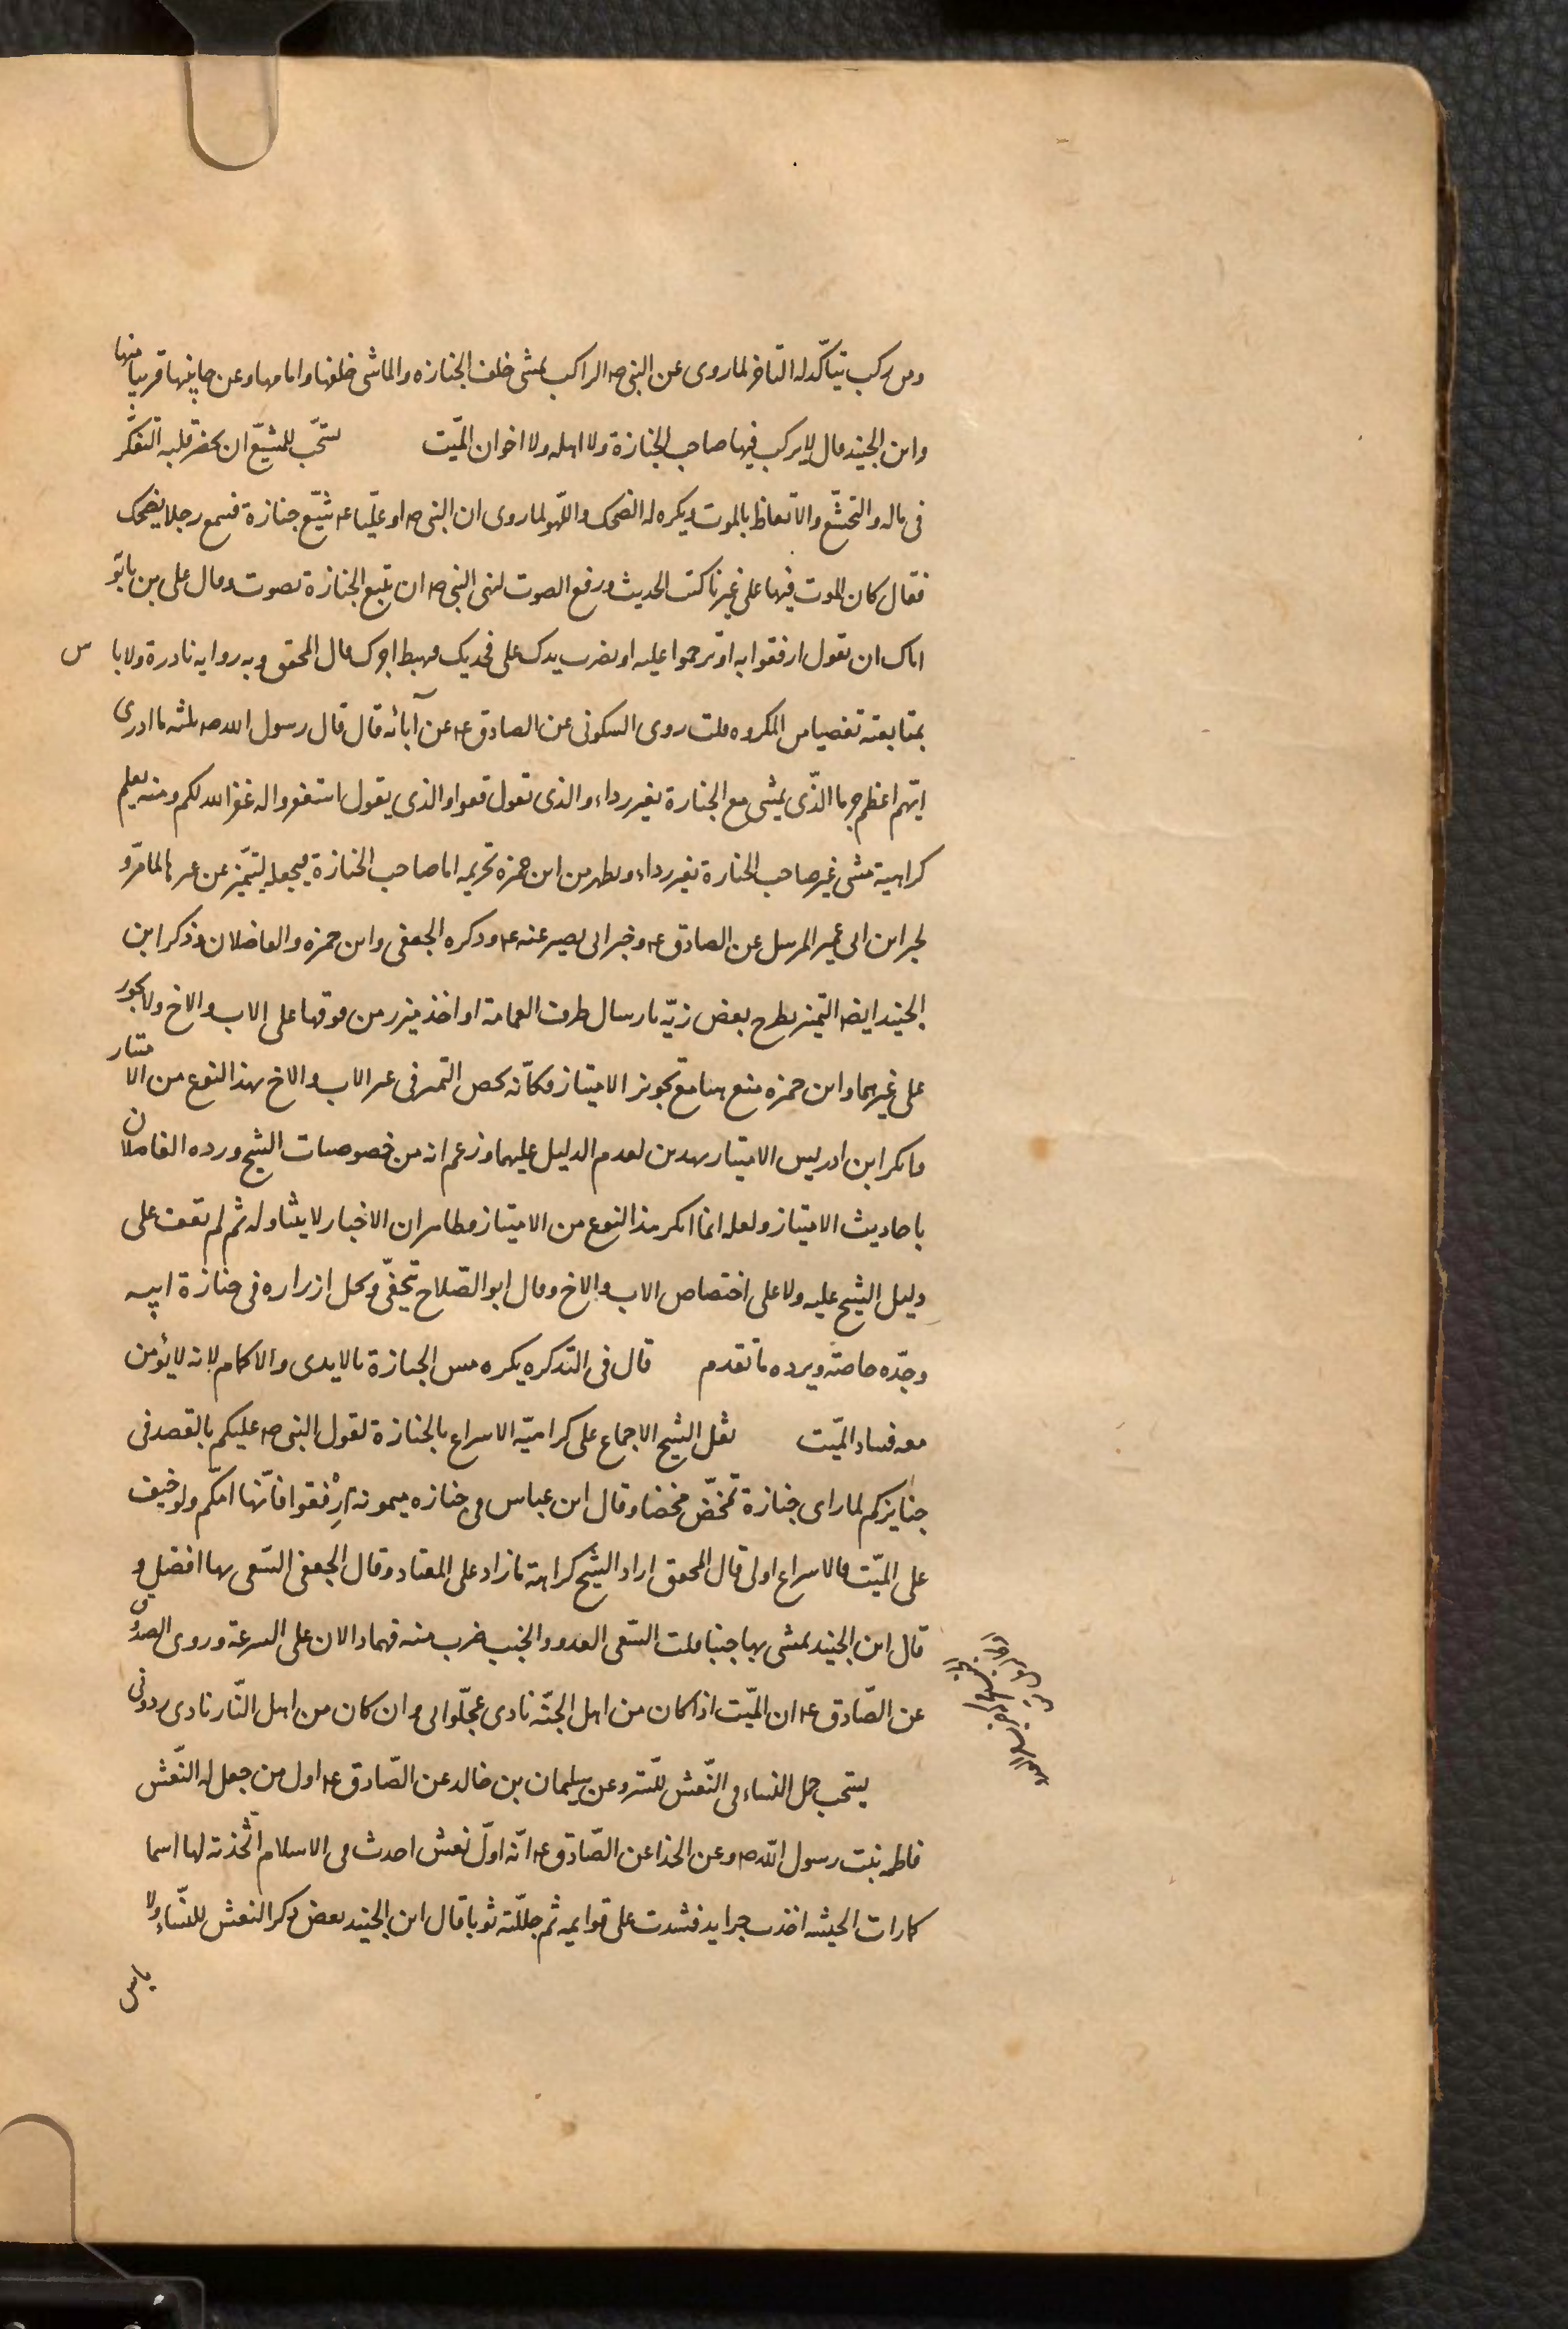 ومن ركب يتأكّد له التأخر لما روى عن النبي ص الراكب يمشى خلف الجنازه والماشى خلفها وامامها وعن جانبها قريبا منها
وابن الجنيد قال لا يركب فيها صاحب الجنازة ولا اهله ولا اخوان الميّت يستحّب للمشيّع ان يحضر قلبه التفكّر
فى ماله والتخشّع والاتعاظ بالموت ويكره له الضحك واللّهو لما روى ان النبي ص او عليّا ع شيّع جنازة فسمع رجلا يضحك
فقال كان الموت فيها على غيرنا كتب الحديث ورفع الصوت لنهى النبي ص ان تتبع الجنازة بصوت وقال على بن بابو
اياك ان تقول ارفقوا به او ترحموا عليه او تضرب يدك على فخذيك فيحبط اجرك قال المحقق وبه روايه نادرة ولا باس
بمتابعته تفصيا من المكروه قلت روى السكونى عن الصادق ع عن آبائه قال قال رسول الله ص ثلثه ما ادرى
ايّهم اعظم جرما الذّى يمشى مع الجنازة بغير رداء والذى يقول قفوا والذى يقول استغفروا له غفر الله لكم ومنه يعلم
كراهية مشى غير صاحب الجنازة بغير رداء ويظهر من ابن حمزه تحريمه اما صاحب الجنازة فيجعله ليتميّز عن غيره لما مرّ و
لخبر ابن ابى عمير المرسل عن الصادق ع وخبر ابى بصير عنه ع وذكره الجعفى وابن حمزه والفاضلان وذكر ابن
الجنيد ايضا التميز بطرح بعض زيّه بارسال طرف العمامة او اخذ ميزر من فوقها على الاب والاخ ولا يجوز
على غيرهما وابن حمزه منع هنا مع تجويز الامتياز فكأنّه يخص التميز فى غير الاب والاخ بهذا النوع من الامتياز
وانكر ابن ادريس الامتياز بهذين لعدم الدليل عليهما وزعم انه من خصوصيات الشيخ ورده الفاضلان
باحاديث الامتياز ولعله انما انكر هذا النوع من الامتياز وظاهر ان الاخبار لا يتناوله ثم لم نقف على
دليل الشيخ عليه ولا على اختصاص الاب والاخ وقال ابو الصّلاح يتحفّى ويحل ازراره فى جنازة ابيه
وجدّه خاصّة ويرده ما تقدم قال فى التذكره يكره مس الجنازة بالايدى والاكمام لانه لا يؤمن
معه فساد الميّت نقل الشيخ الاجماع على كراهيّة الاسراع بالجنازة لقول النبي ص عليكم بالقصد فى
جنايزكم لما راى جنازة تمخّض مخضا وقال ابن عباس فى جنازه ميمونه ارْفقوا فانّها امّكم ولو خيف
على الميّت فالاسراع اولى قال المحقق اراد الشيخ كراهة ما زاد على المعتاد وقال الجعفى السّعى بها افضل و
قال ابن الجنيد يمشى بها جنبا قلت السّعى العدو والجنب ضرب منه فهما دالان على السرعة وروى الصدوّق
عن الصّادق ع ان الميّت اذا كان من اهل الجنّه نادى عجّلوا بى وان كان من اهل النّار نادى ردونى
يستحب حمل النساء فى النّعش للسّتر وعن سليمان بن خالد عن الصّادق ع اول من جعل له النّعش
فاطمه بنت رسول اللّه ص وعن الحذا عن الصّادق ع انّه اوّل نعش احدث فى الاسلام اتّخذته لها اسما
كما رات الحبشه اخذت جرايد فشدت على قوايمه ثم جلّلته ثوبا قال ابن الجنيد بعض ذكر النعش للنّساء ولا
باس